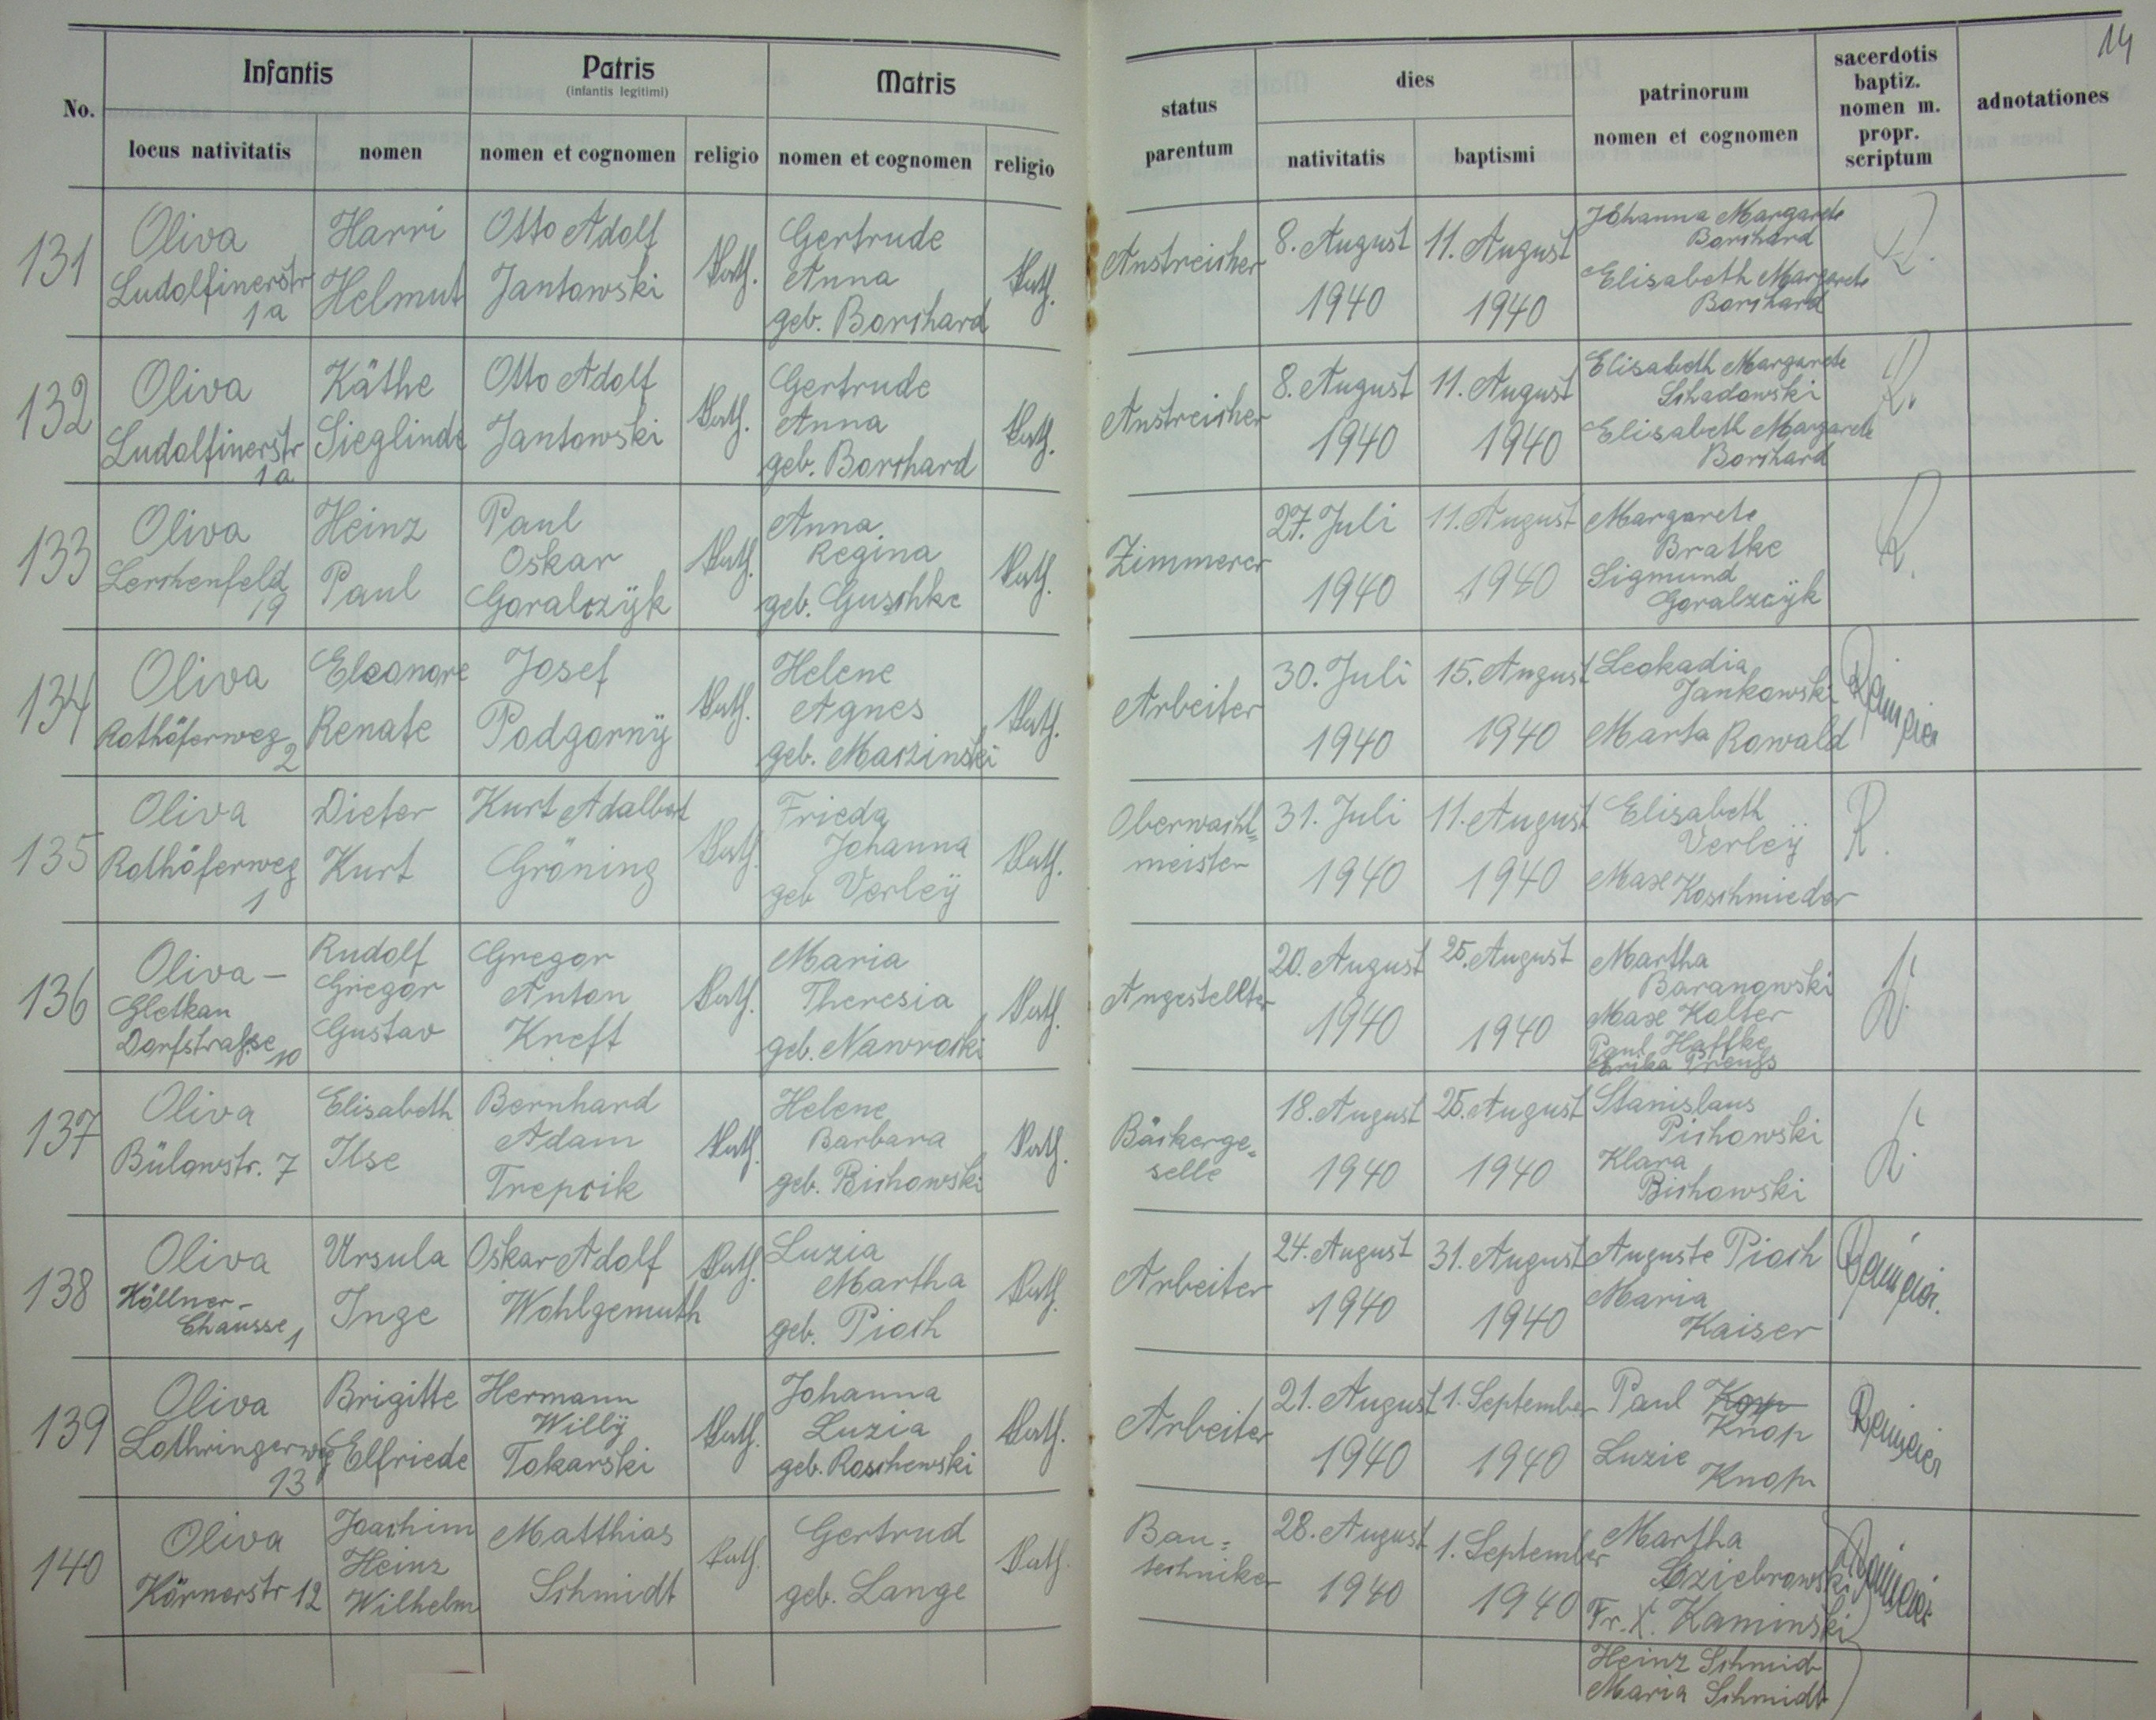 14
No.
Infantis
Patris
(infantis legitimi)
Matris
status
parentum
dies
patrinorum
nomen et cognomen
sacerdotis
baptiz.
nomen m.
propr.
scriptum
adnotationes
locus nativitatis
nomen
nomen et cognomen
religio
nomen et cognomen
religio
nativitatis
baptismi
131
Oliva
Ludolfinerstr
1a
Harri
Helmut
Otto Adolf
Jantowski
Kath.
Gertrude
Anna
geb. Borchard
Kath.
Anstreicher
8. August
1940
11. August
1940
Johanna Margarete
Borchard
Elisabeth Margarete
Borchard
R.
132
Oliva
Ludolfinerstr
1a
Käthe
Sieglinde
Otto Adolf
Jantowski
Kath.
Gertrude
Anna
geb. Borchard
Kath.
Anstreicher
8. August
1940
11. August
1940
Elisabeth Margarete
Schadowski
Elisabeth Margarete
Borchard
R.
133
Oliva
Lerchenfeld
19
Heinz
Paul
Paul
Oskar
Goralczÿk
Kath.
Anna
Regina
geb. Guschke
Kath.
Zimmerer
27. Juli
1940
11. August
1940
Margarete
Bratke
Sigmund
Goralzcÿk
R.
134
Oliva
Rothöferweg
2
Eleonore
Renate
Josef
Podgornÿ
Kath.
Helene
Agnes
geb. Marzinski
Kath.
Arbeiter
30. Juli
1940
15. August
1940
Leokadia
Jankowski
Marta Rowald
135
Oliva
Rothöferweg
1
Dieter
Kurt
Kurt Adalbert
Gröning
Kath.
Frieda
Johanna
geb Verleÿ
Kath.
Oberwacht=
meister
31. Juli
1940
11. August
1940
Elisabeth
Verleÿ
Max
Koschmieder
R.
136
Oliva -
Gletkau
Dorfstraße 10
Rudolf
Gregor
Gustav
Gregor
Anton
Kreft
Kath.
Maria
Theresia
geb. Nawrocki
Kath.
Angestellter
20. August
1940
25. August
1940
Martha
Baranowski
Max Kolter
Paul Haffke
Erika Preuß
137
Oliva
Bülowstr. 7
Elisabeth
Ilse
Bernhard
Adam
Trepcik
Kath.
Helene
Barbara
geb. Bichowski
Kath.
Bäckerge=
selle
18. August
1940
25. August
1940
Stanislaus
Pichowski
Klara
Bichowski
138
Oliva
Köllner-
Chausse 1
Ursula
Inge
Oskar Adolf
Wohlgemuth
Kath.
Luzia
Martha
geb. Pioch
Kath.
Arbeiter
24. August
1940
31. August
1940
Auguste Pioch
Maria
Kaiser
139
Oliva
Lothringerweg
13
Brigitte
Elfriede
Hermann
Willÿ
Tokarski
Kath.
Johanna
Luzia
geb. Roschewski
Kath.
Arbeiter
21. August
1940
1. September
1940
Paul Kopp
Knop
Luzie
Knop
140
Oliva
Körnerstr 12
Joachim
Heinz
Wilhelm
Matthias
Schmidt
Kath.
Gertrud
geb. Lange
Kath.
Bau=
techniker
28. August
1940
1. September
1940
Martha
Fr. X. Kaminski
Heinz Schmidt
Maria Schmidt